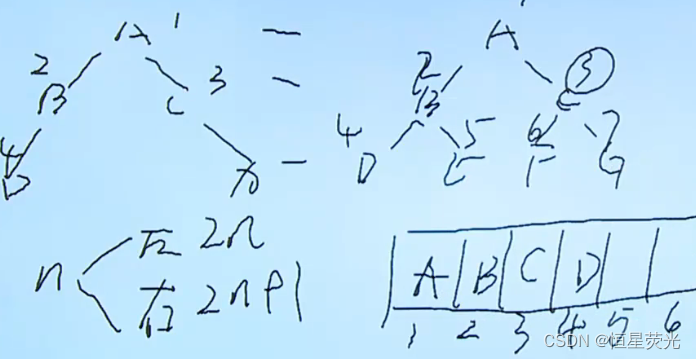 A 1
2 B
C 3
4 D
A
2 B
3 C
4 D
5 E
6 F
7 G
n
左 2n
右 2n+1
A B C D
1 2 3 4 5 6
CSDN @恒星荧光